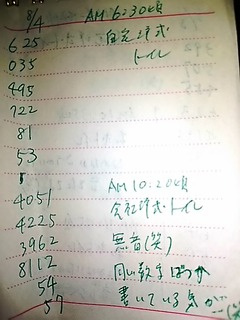 8/4 AM 6:30頃
625 自宅洋式
035 トイレ
495
722
81
53
4051 AM 10:20頃
4225 会社洋式トイレ
3962 無音(笑)
8112 同じ数字ばっか
54 書いている気が…(笑)
57